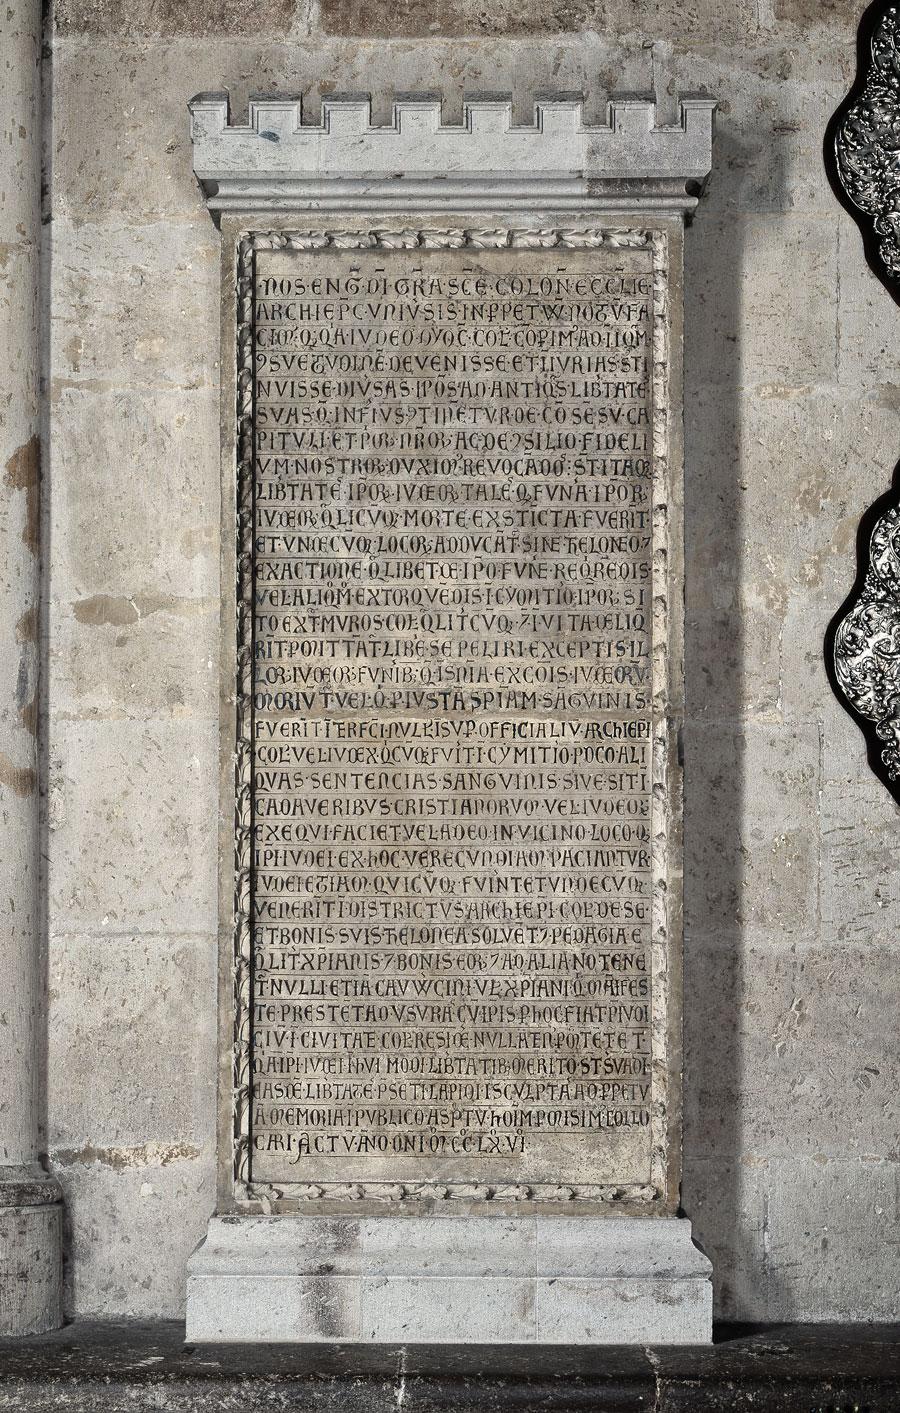 NOS·ENG̅·D̅I·GRA·SC̅E·COLON·ECCLIE
ARCHIEP̅C·UNIU̅SIS·IN·PPETUU̅·NOTU̅·FA
CIM̅·Q̅·Q̅A·IUDEO·DYOC·COL̅·COPIM̅·AD·LIQ̅M
ꝯSUETUDINE̅·DEVENISSE·ET·IIURIAS·STI
NUISSE·DIU̅SAS·IPO̅S·AD·ANTIQ̅S·LIB̅TATE
SUAS·Q̅·INFIUS·ꝯTINE̅TUR·DE·CO̅SE̅SU·CA
PITULI·ET·POꝜ·NR̅OꝜ·AC·DE·ꝯSILIO·FIDELI
UM·NOSTROꝜ·DUXIM̅·REVOCADO̅S·STITAQ̅
LIB̅TATE̅·IPOꝜ·IUDEOꝜ·TALE̅·Q̅·FUN̅A·IPOꝜ
IUDEOꝜ·Q̅LICUQ̅·MORTE·EXSTI̅CTA·FUERI̅T
ET·UNDECU̅Q̅·LOCOꝜ·ADDUCA̅T̅·SINE·THELONEO·⁊
EXACTIONE·Q̅LIBET·DE·IPO̅·FUNE·REQ̅RE̅DIS
VEL·ALIQ̅M̅·EXTORQUE̅DIS·I·CYMITIO·IPOꝜ·SI
TO·EXT̅·MUROS·COL̅·Q̅LIT̅CUQ̅·I·VITA·DELIQ̅
RI̅T·PONI̅T̅·TA̅T·LIBE̅·SEPELIRI·EXCEPTIS·IL
LOꝜ·IUDEOꝜ·FUNIB̅·Q̅·I·SN̅IA·EXCO̅IS·IUDEORU̅·
MORIU̅T̅·VEL·Q̅·P·IUSTA̅·SPIAM·SA̅GUINIS·
FUERI̅T·I̅TERFCI·NULL̅·ISUP·OFFICIALIU̅·ARCHIEPI
COL̅·VEL·IUDEX·Q̅CUQ̅·FUI̅T·I·CYMITIO·POCO·ALI
QUAS·SENTENCIAS·SANGUINIS·SIVE·SI̅T·I
CADAVERIBUS·CRISTIANORUM·VEL·IUDEOꝜ
EXEQUI·FACIET·VEL·ADEO·IN·VICINO·LOCO·Q̅
IPI·IUDEI·EX·HOC·VERECUNDIAM·PACIANTUR
IUDEI·ETIAM·QUICU̅Q̅·FUI̅NT·ET·UNDECUQ̅·
VENERI̅T·I·DISTRICTU̅S·ARCHIEPI·COL̅·DE·SE·
ET·BONIS·SUIS·THELONEA·SOLVE̅T·⁊·PEDAGIA·E
Q̅LIT̅·XPIANIS·⁊·BONIS·EOꝜ·⁊·AD·ALIA·NO̅·TENE
T̅·NULLI·ETIA̅·CAUWCINI·UL̅·XPIANI·Q̅·MAIFES
TE·PRESTET·AD·USURA̅·CU̅·IPIS·P·HOC·FIAT·P·IUDI
CIU̅·I·CIVITAT̅E·COL̅·RESIDE̅·NULLATEN̅·PMITTET
Q̅A·IPI·IUDEI·HUI̅·MODI·LIB̅TATIB̅·MERITO·ST̅·GAUDE
EAS·DE·LIB̅TATE·P·SETI·LAPIDI·I·SCULPTA̅·AD·PPETU
A̅·MEMORIA̅·I·PUBLICO·ASP̅TU·HOIM·PMISIM̅·COLLO
CARI·ACTU̅·AN̅O·DNI·M̅·CC̅·LX·VI·